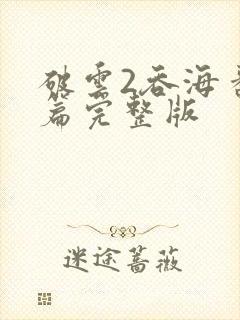 破雲2吞海番
篇完整版
迷途蔷薇